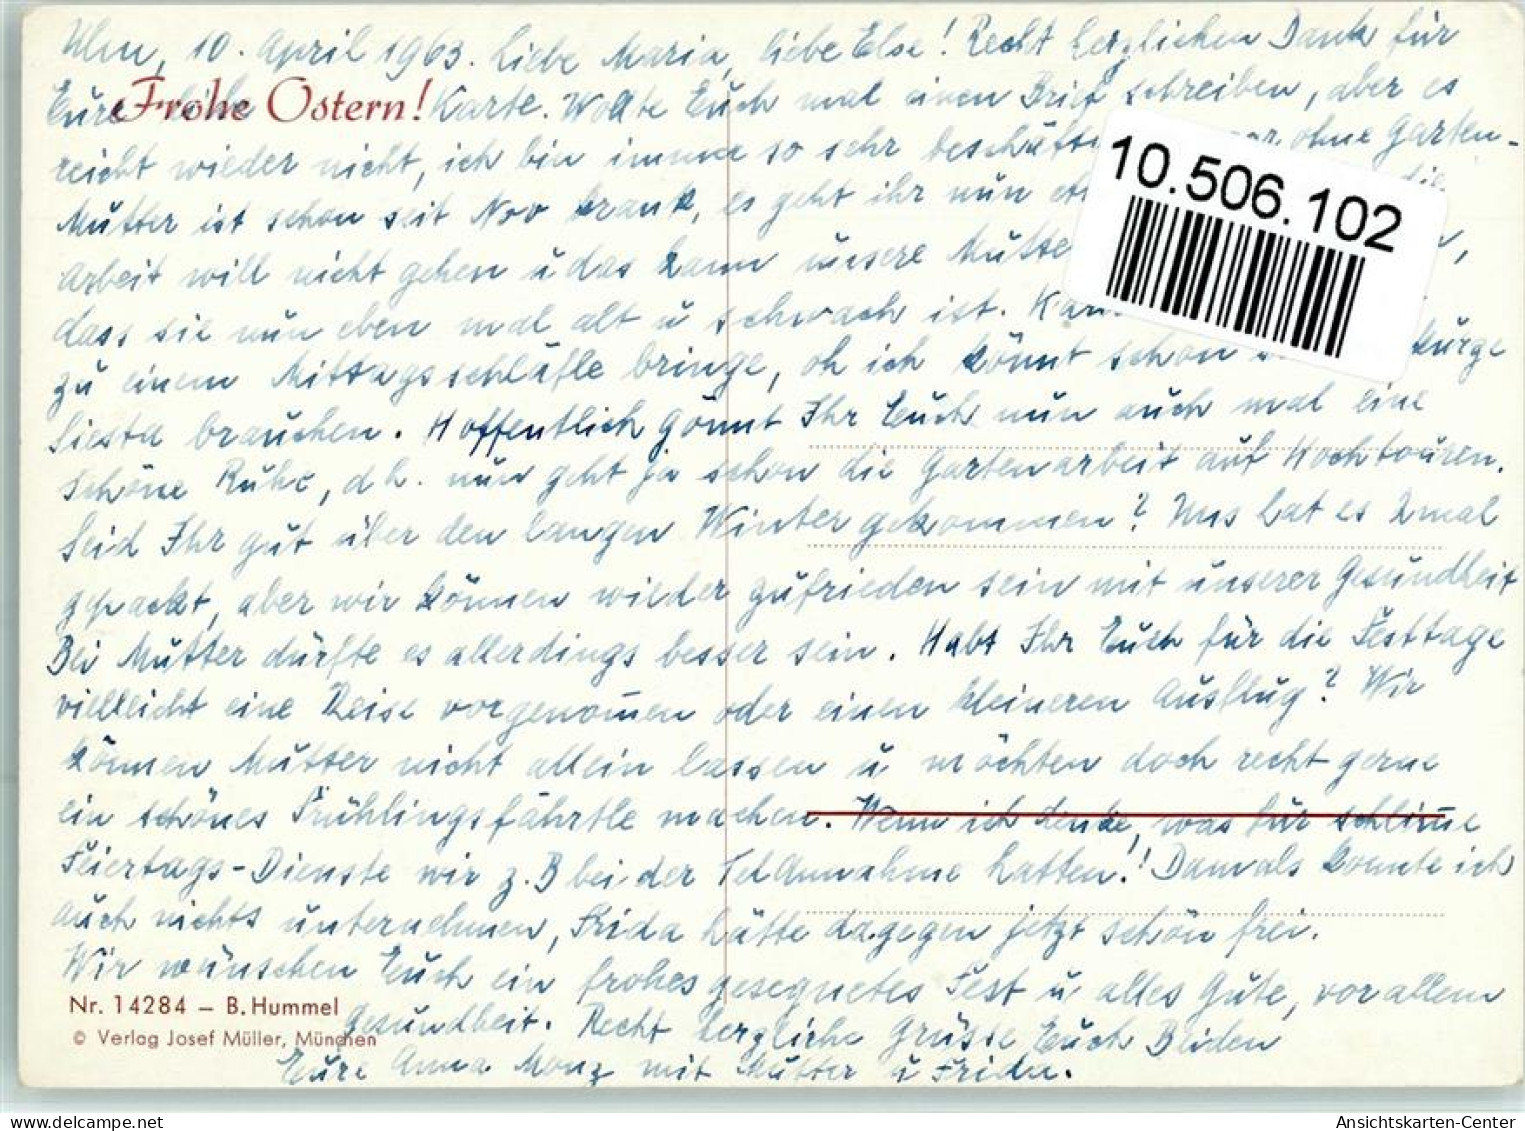 Ulm, 10. April 1963. Liebe Maria, liebe Else! Recht herzlichen Dank für
Frohe Ostern!
Eure liebe Karte. Wollte Euch mal einen Brief schreiben, aber es
reicht wieder nicht, ich bin immer so sehr beschäfti ohne Garten-
Mutter ist schon seit Nov krank, es geht ihr nun die
Arbeit will nicht gehen u das kann unsere Mutte
dass sie nun eben mal alt u schwach ist.
zu einem Mittagsschläfle bringe, oh ich könnt schon kurze
Siesta brauchen. Hoffentlich gönnt Ihr Euch nun auch mal eine
schöne Ruhe, d h. nun geht ja schon die Gartenarbeit auf Hochtouren.
Seid Ihr gut über den langen Winter gekommen? Uns hat es 2mal
gepackt, aber wir können wieder zufrieden sein mit unserer Gesundheit
Bei Mutter dürfte es allerdings besser sein. Habt Ihr Euch für die Festtage
vielleicht eine Reise vorgenom̄en oder einen kleineren Ausflug? Wir
können Mutter nicht allein lassen u möchten doch recht gerne
ein schönes Frühlingsfährtle machen. Wenn ich denke, was für schlim̄e
Feiertags-Dienste wir z. B bei der Tel Annahme hatten!! Damals konnte ich
auch nichts unternehmen, Frida hätte dagegen jetzt schön frei.
Wir wünschen Euch ein frohes gesegnetes Fest u alles Gute, vor allem
Gesundheit. Recht herzliche Grüsse Euch Beiden
Eure Anna Manz mit Mutter u Frida.
Nr. 14284 – B. Hummel
© Verlag Josef Müller, München
10.506.102
Ansichtskarten-Center